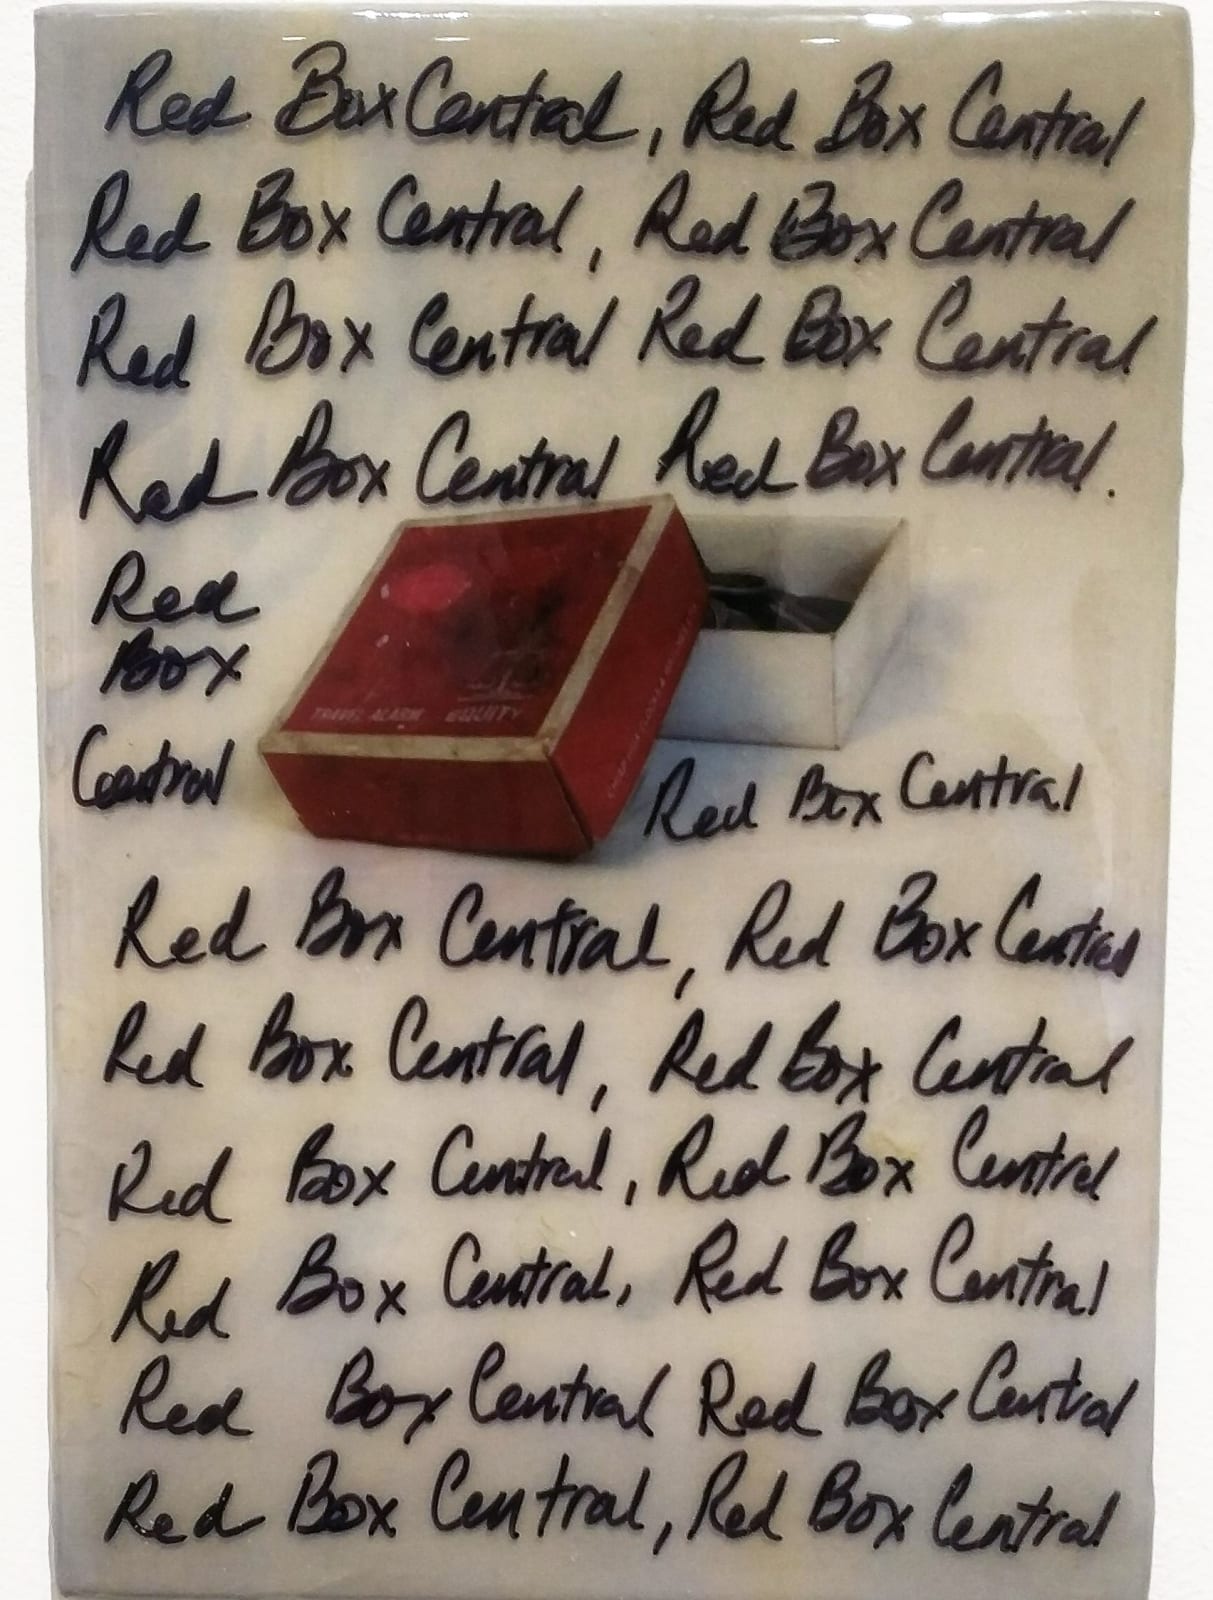 Red Box Central, Red Box Central
Red Box Central, Red Box Central
Red Box Central Red Box Central
Red Box Central Red Box Central.
Red
Box
Central
TRAVEL ALARM EQUITY
Red Box Central
Red Box Central, Red Box Central
Red Box Central, Red Box Central
Red Box Central, Red Box Central
Red Box Central, Red Box Central
Red Box Central Red Box Central
Red Box Central, Red Box Central